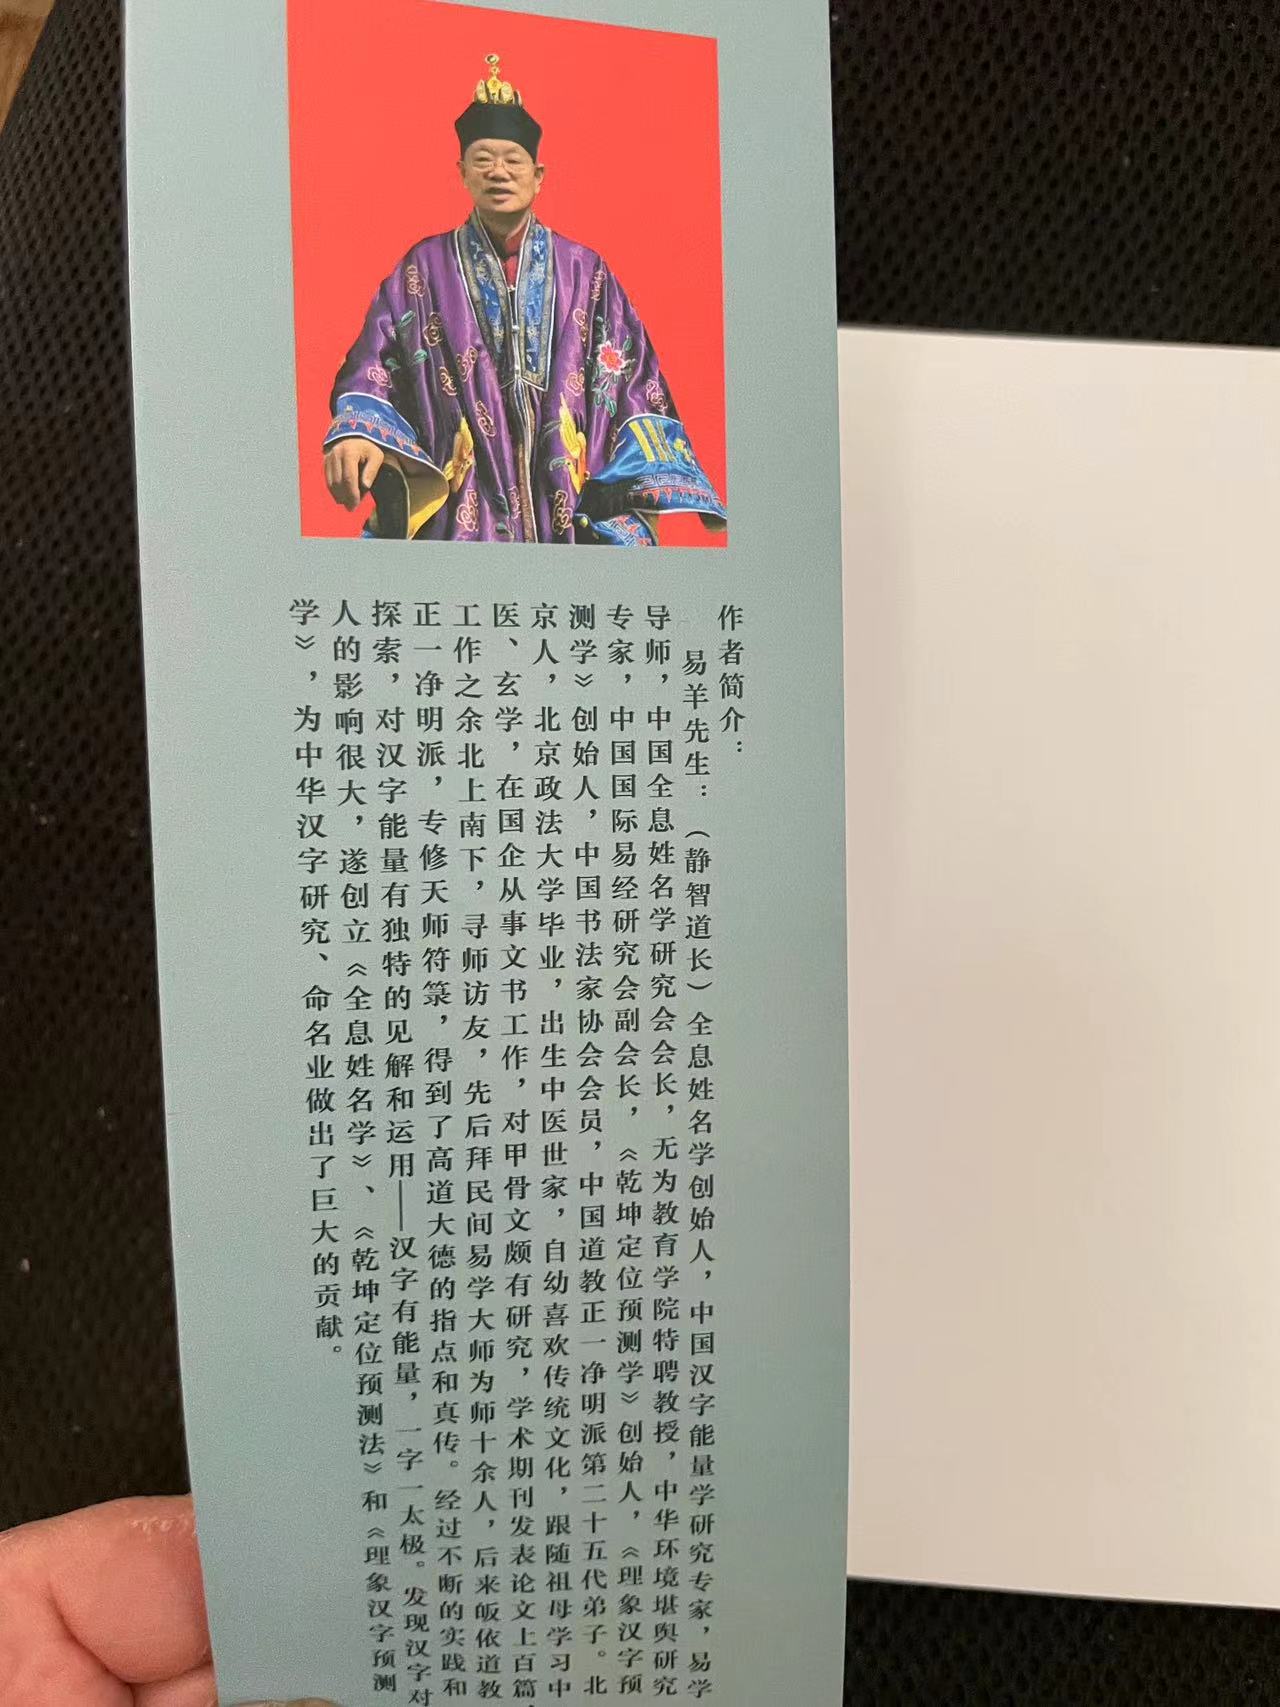 作者简介：
易羊先生：（静智道长）全息姓名学创始人，中国汉字能量学研究专家，易学
导师，中国全息姓名学研究会会长，无为教育学院特聘教授，中华环境堪舆研究
专家，中国国际易经研究会副会长，《乾坤定位预测学》创始人，《理象汉字预
测学》创始人，中国书法家协会会员，中国道教正一净明派第二十五代弟子。北
京人，北京政法大学毕业，出生中医世家，自幼喜欢传统文化，跟随祖母学习中
医、玄学，在国企从事文书工作，对甲骨文颇有研究，学术期刊发表论文上百篇，
工作之余北上南下，寻师访友，先后拜民间易学大师为师十余人，后来皈依道教
正一净明派，专修天师符箓，得到了高道大德的指点和真传。经过不断的实践和
探索，对汉字能量有独特的见解和运用——汉字有能量，一字一太极。发现汉字对
人的影响很大，遂创立《全息姓名学》、《乾坤定位预测法》和《理象汉字预测
学》，为中华汉字研究、命名业做出了巨大的贡献。